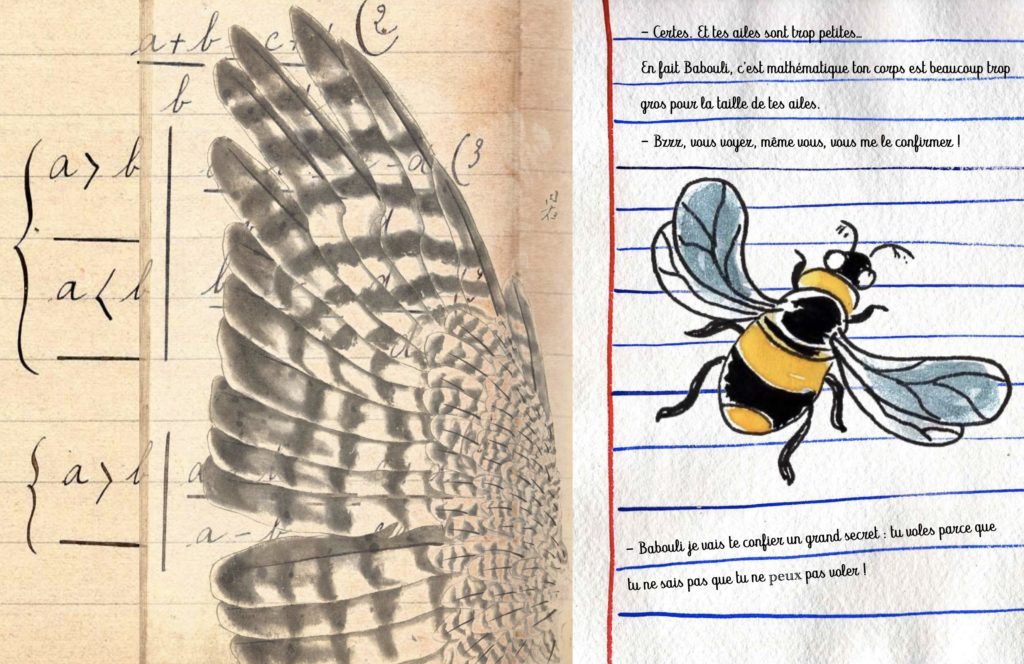 a+b
(2
b
a > b
(3
a < b
a > b
a - b
– Certes. Et tes ailes sont trop petites...
En fait Babouli, c'est mathématique ton corps est beaucoup trop
gros pour la taille de tes ailes.
– Bzzz, vous voyez, même vous, vous me le confirmez !
– Babouli je vais te confier un grand secret : tu voles parce que
tu ne sais pas que tu ne peux pas voler !